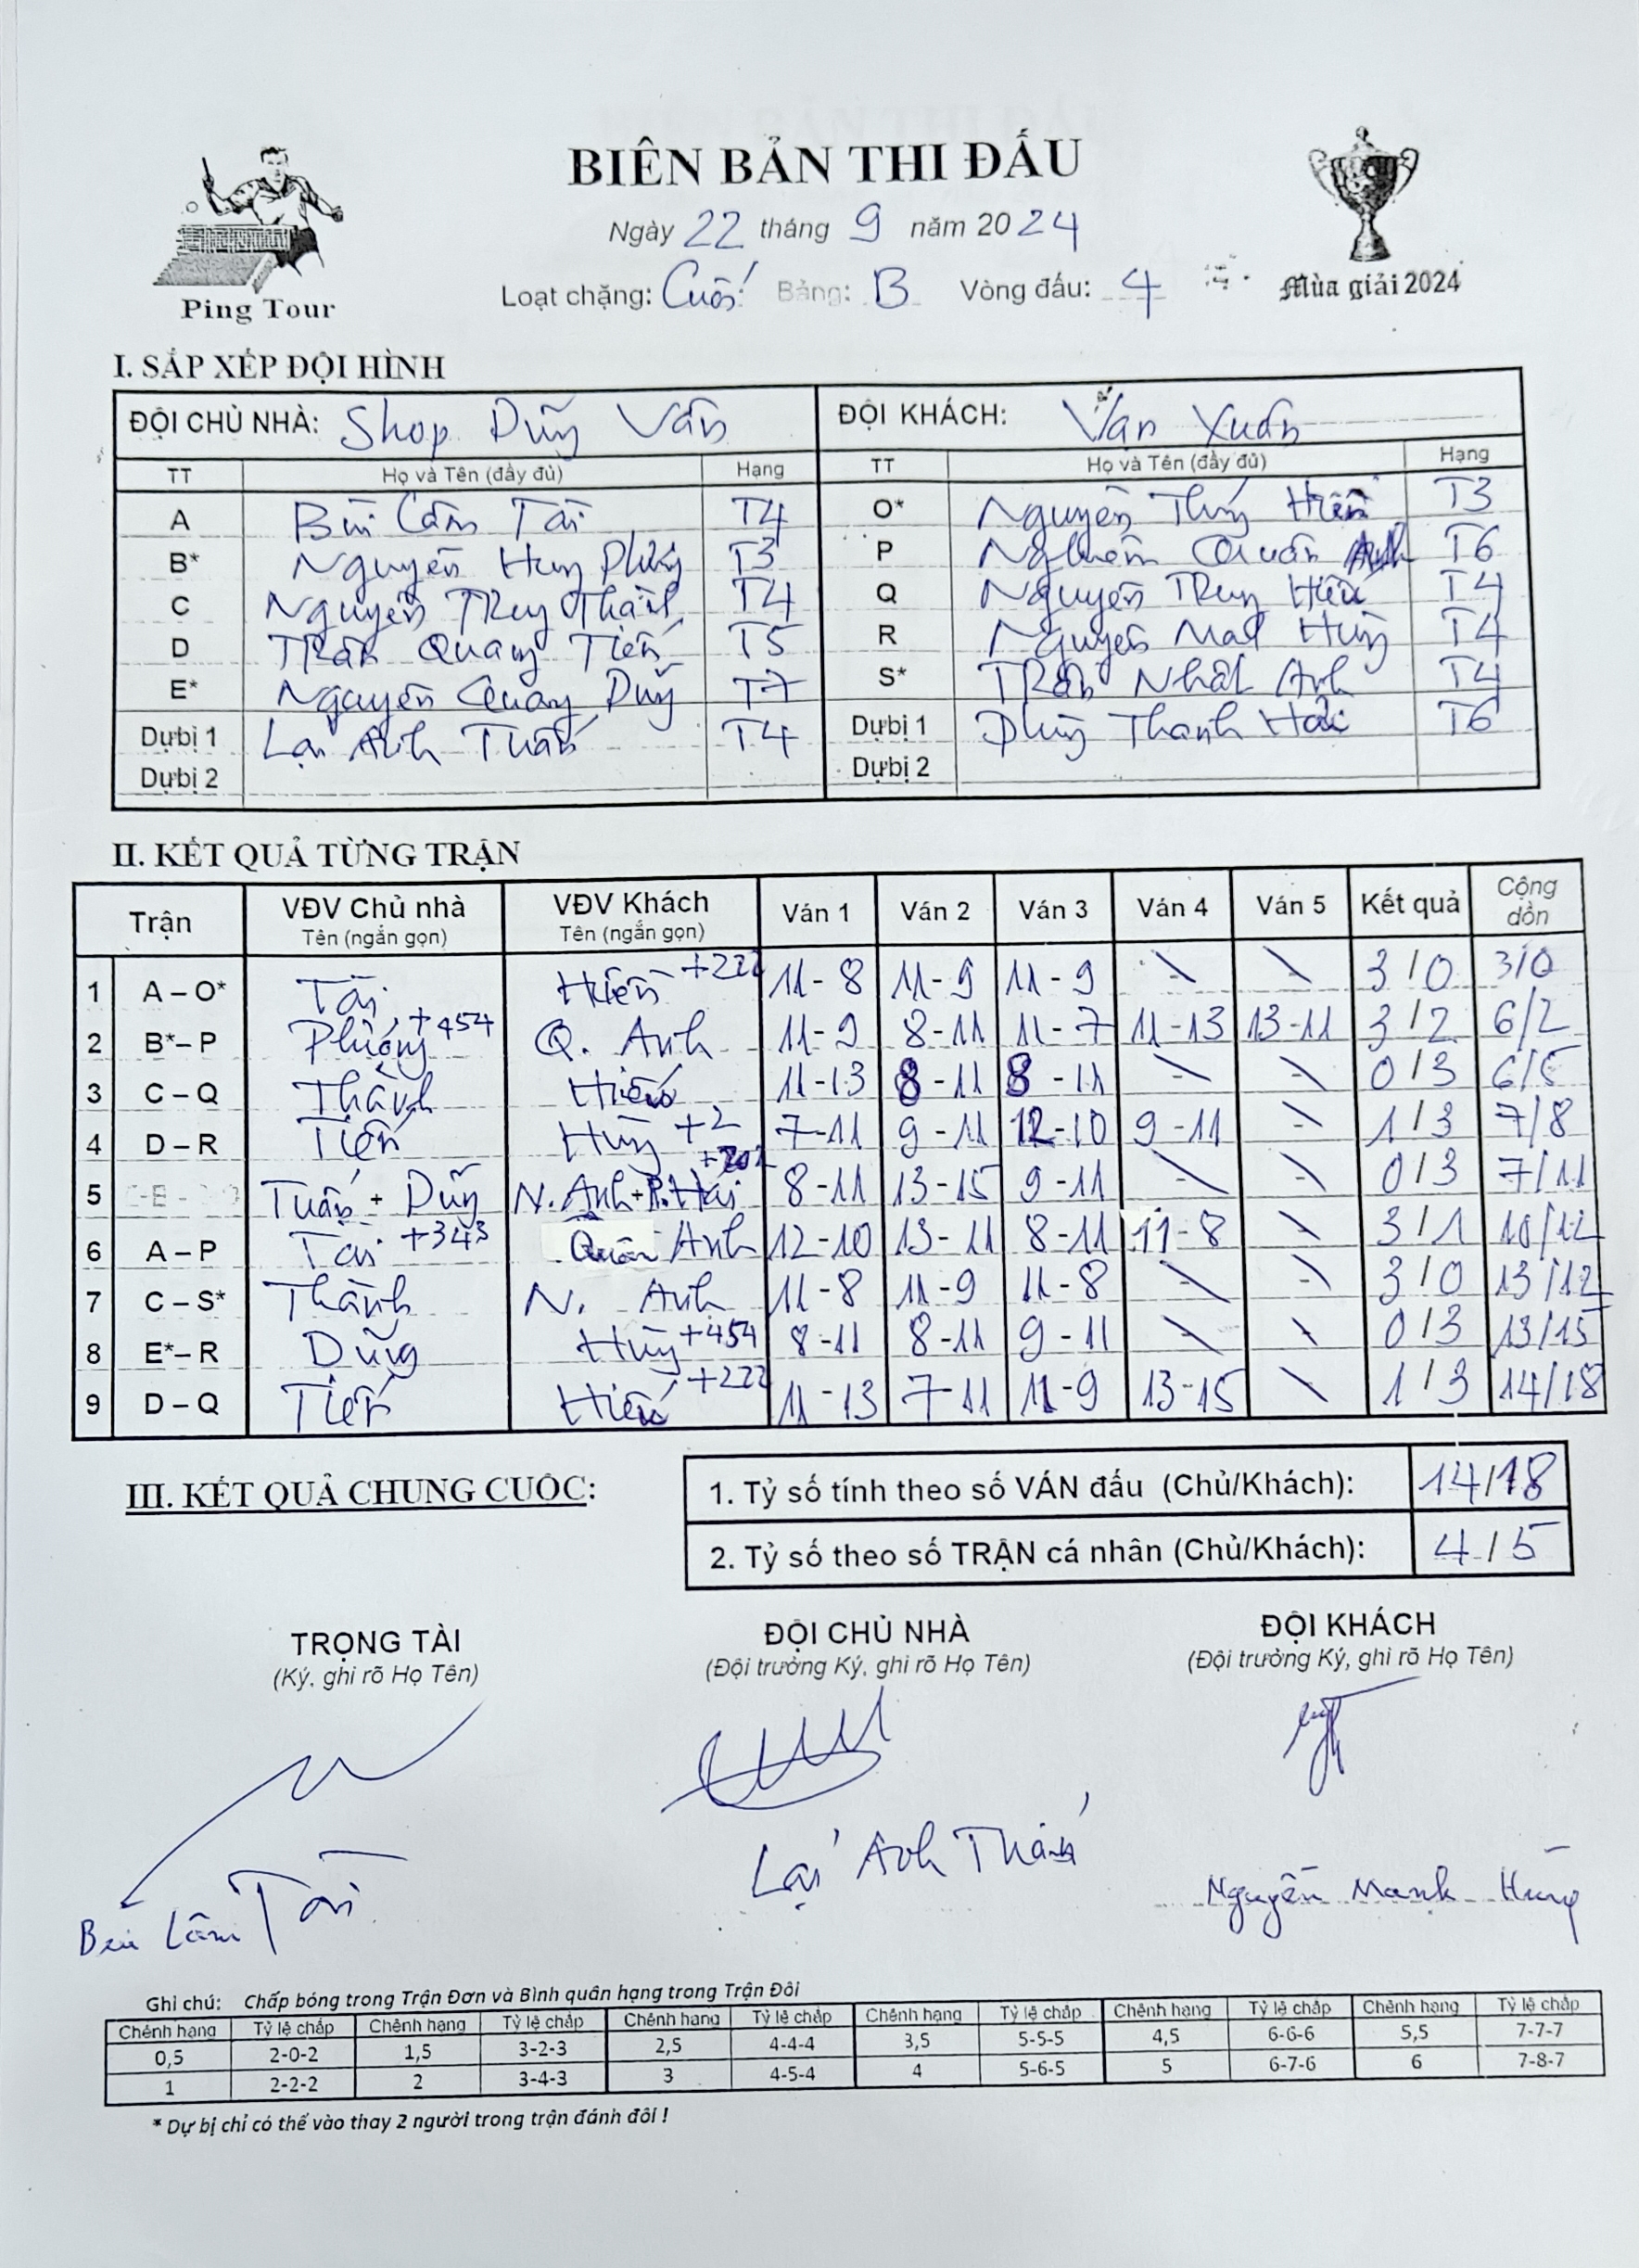 BIÊN BẢN THI ĐẤU
Ngày 22 tháng 9 năm 2024
Ping Tour
Loạt chặng: Cuối Bảng: B Vòng đấu: 4
Mùa giải 2024
I. SẮP XẾP ĐỘI HÌNH
ĐỘI CHỦ NHÀ: Shop Dũng Vân ĐỘI KHÁCH: Vạn Xuân
TT Họ và Tên (đầy đủ) Hạng TT Họ và Tên (đầy đủ) Hạng
A Bùi Lâm Tài T4 O* Nguyễn Thúy Hiền T3
B* Nguyễn Huy Phương T3 P Nghiêm Quân Anh T6
C Nguyễn Trung Thành T4 Q Nguyễn Trung Hiếu T4
D Trần Quang Tiến T5 R Nguyễn Mạnh Hùng T4
E* Nguyễn Quang Dũng T7 S* Trần Nhật Anh T4
Dự bị 1 Lại Anh Tuấn T4 Dự bị 1 Phùng Thanh Hải T6
Dự bị 2 Dự bị 2
II. KẾT QUẢ TỪNG TRẬN
Trận VĐV Chủ nhà Tên (ngắn gọn) VĐV Khách Tên (ngắn gọn) Ván 1 Ván 2 Ván 3 Ván 4 Ván 5 Kết quả Cộng dồn
1 A – O* Tài Hiền +222 11-8 11-9 11-9 3/0 3/0
2 B* – P Phương +454 Q. Anh 11-9 8-11 11-7 11-13 13-11 3/2 6/2
3 C – Q Thành Hiếu 11-13 8-11 8-11 0/3 6/5
4 D – R Tiến Hùng +2 7-11 9-11 12-10 9-11 1/3 7/8
5 Tuấn + Dũng N. Anh + P. Hải +202 8-11 13-15 9-11 0/3 7/11
6 A – P Tài +343 Quân Anh 12-10 13-11 8-11 11-8 3/1 10/12
7 C – S* Thành N. Anh 11-8 11-9 11-8 3/0 13/12
8 E* – R Dũng Hùng +454 8-11 8-11 9-11 0/3 13/15
9 D – Q Tiến Hiếu +222 11-13 7-11 11-9 13-15 1/3 14/18
III. KẾT QUẢ CHUNG CUỘC:
1. Tỷ số tính theo số VÁN đấu (Chủ/Khách): 14/18
2. Tỷ số theo số TRẬN cá nhân (Chủ/Khách): 4/5
TRỌNG TÀI ĐỘI CHỦ NHÀ ĐỘI KHÁCH
(Ký, ghi rõ Họ Tên) (Đội trưởng Ký, ghi rõ Họ Tên) (Đội trưởng Ký, ghi rõ Họ Tên)
Bùi Lâm Tài Lại Anh Nguyễn Mạnh Hùng
Ghi chú: Chấp bóng trong Trận Đơn và Bình quân hạng trong Trận Đôi
Chênh hạng Tỷ lệ chấp Chênh hạng Tỷ lệ chấp Chênh hạng Tỷ lệ chấp Chênh hạng Tỷ lệ chấp Chênh hạng Tỷ lệ chấp Chênh hạng Tỷ lệ chấp
0,5 2-0-2 1,5 3-2-3 2,5 4-4-4 3,5 5-5-5 4,5 6-6-6 5,5 7-7-7
1 2-2-2 2 3-4-3 3 4-5-4 4 5-6-5 5 6-7-6 6 7-8-7
* Dự bị chỉ có thể vào thay 2 người trong trận đánh đôi !